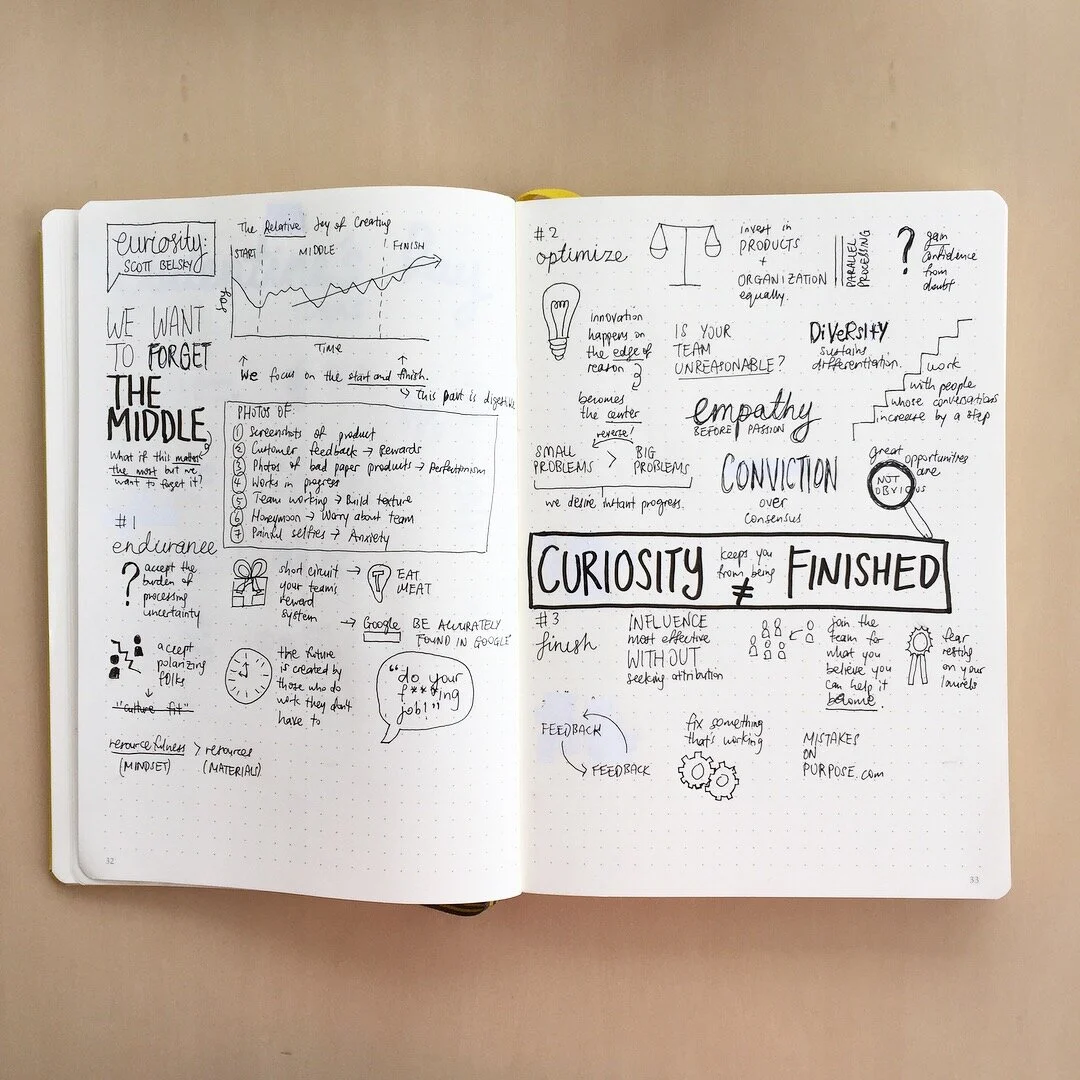 curiosity:
SCOTT BELSKY
WE WANT
TO FORGET
THE
MIDDLE
What if this makes
the most but we
want to forget it?
The Relative Joy of Creating
START
MIDDLE
FINISH
Joy
TIME
We focus on the start and finish.
This part is digestible
PHOTOS OF:
1 Screenshots of product
2 Customer feedback → Rewards
3 Photos of bad paper products → Perfectionism
4 Works in progress
5 Team working → Build texture
6 Honeymoon → Worry about team
7 Painful selfies → Anxiety
#1
endurance
? accept the
burden of
processing
uncertainty
short circuit →
your team's
reward
system
EAT
MEAT
→ Google
BE ACCURATELY
FOUND IN GOOGLE
accept
polarizing
folks
"culture fit"
the future
is created by
those who do
work they don't
have to
"do your
f***ing
job!"
resourcefulness > resources
(MINDSET) (MATERIALS)
32
#2
optimize
invest in
PRODUCTS
+
ORGANIZATION
equally.
PARALLEL
PROCESSING
? gain
confidence
from
doubt
innovation
happens on
the edge of
reason
becomes
the center
IS YOUR
TEAM
UNREASONABLE?
DiVeRSiTY
sustains
differentiation.
work
with people
whose conversations
increase by a step
empathy
BEFORE PASSION
reverse!
SMALL
PROBLEMS
>
BIG
PROBLEMS
we desire instant progress.
CONVICTION
over
consensus
great
opportunities
are
NOT
OBVIOUS
CURIOSITY
keeps you
from being
≠
FINISHED
#3
finish
INFLUENCE
most effective
WITHOUT
seeking attribution
join the
team for
what you
believe you
can help it
become.
fear
resting
on your
laurels
FEEDBACK
FEEDBACK
fix something
that's working
MISTAKES
ON
PURPOSE.com
33